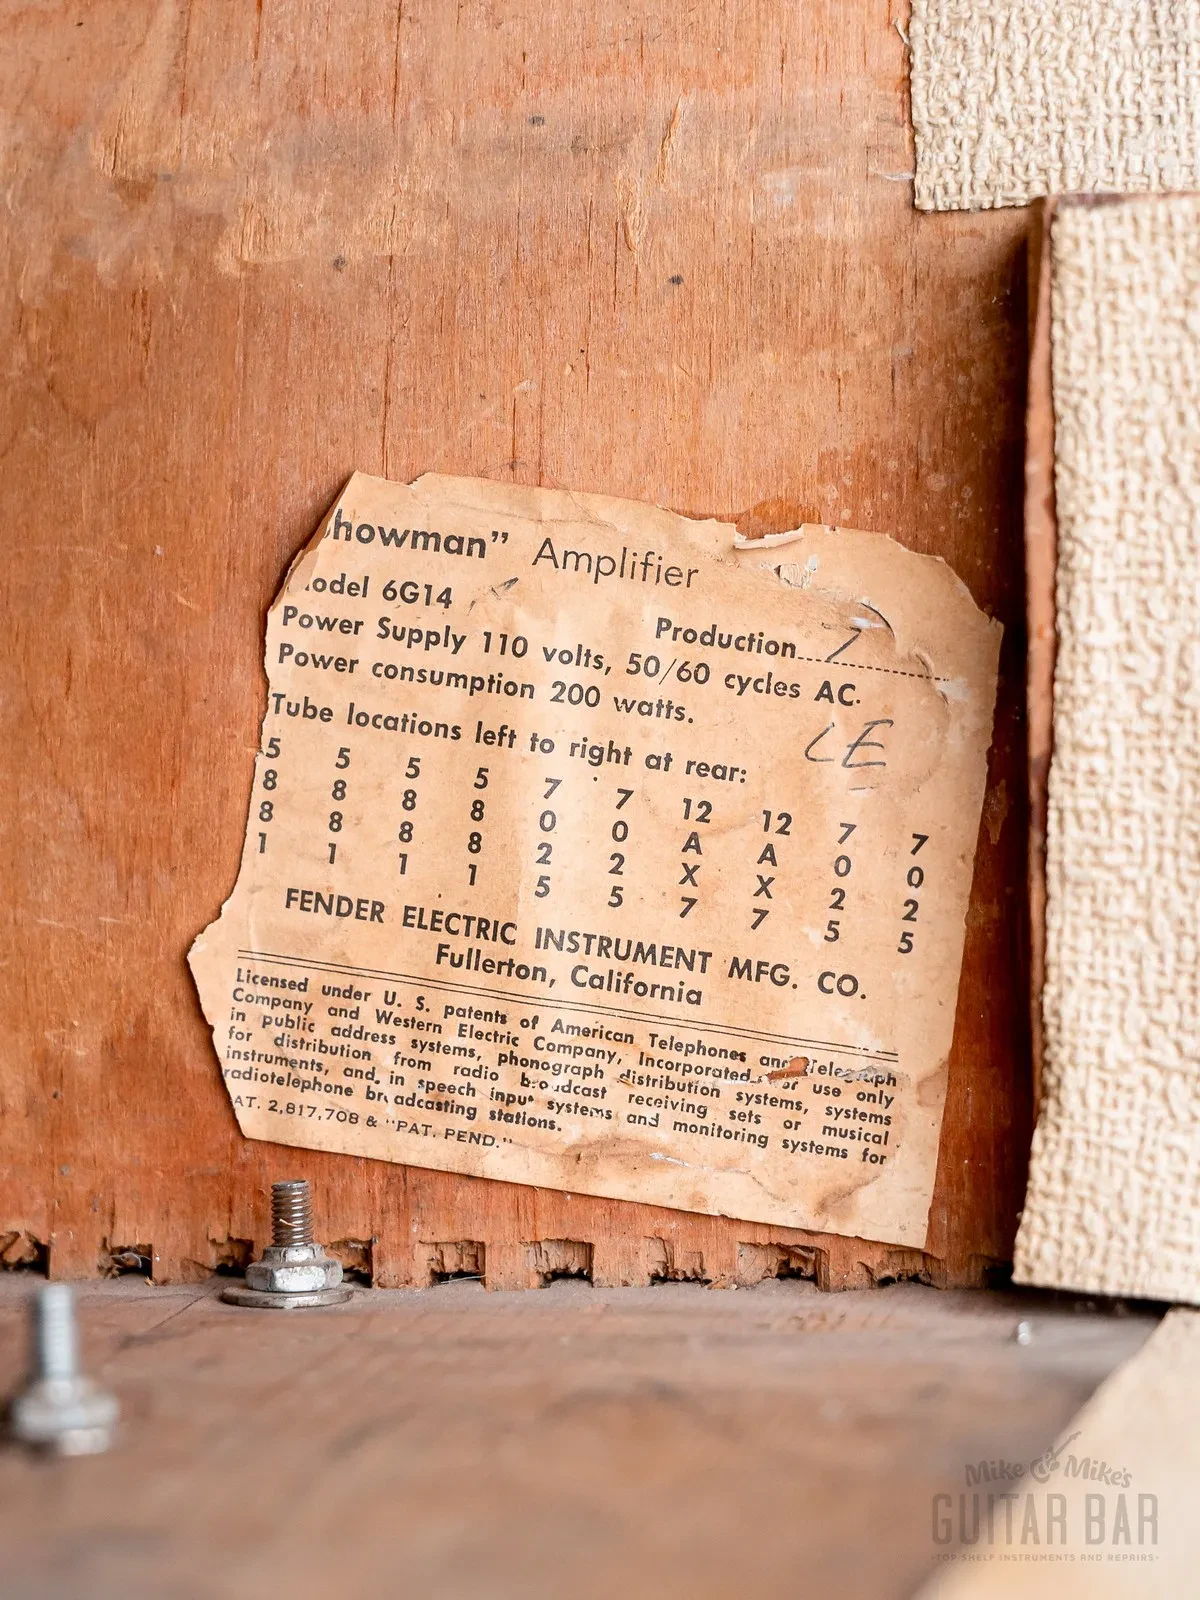 howman” Amplifier
odel 6G14
Production 7
Power Supply 110 volts, 50/60 cycles AC.
Power consumption 200 watts.
LE
Tube locations left to right at rear:
5 5 5 5 7 7 12 12 7 7
8 8 8 8 0 0 A A 0 0
8 8 8 8 2 2 X X 2 2
1 1 1 1 5 5 7 7 5 5
FENDER ELECTRIC INSTRUMENT MFG. CO.
Fullerton, California
Licensed under U. S. patents of American Telephone and Telegraph
Company and Western Electric Company, Incorporated for use only
in public address systems, phonograph distribution systems, systems
for distribution from radio broadcast receiving sets or musical
instruments, and in speech input systems and monitoring systems for
radiotelephone broadcasting stations.
AT. 2,817,708 & "PAT. PEND."
Mike & Mike's
GUITAR BAR
TOP SHELF INSTRUMENTS AND REPAIRS